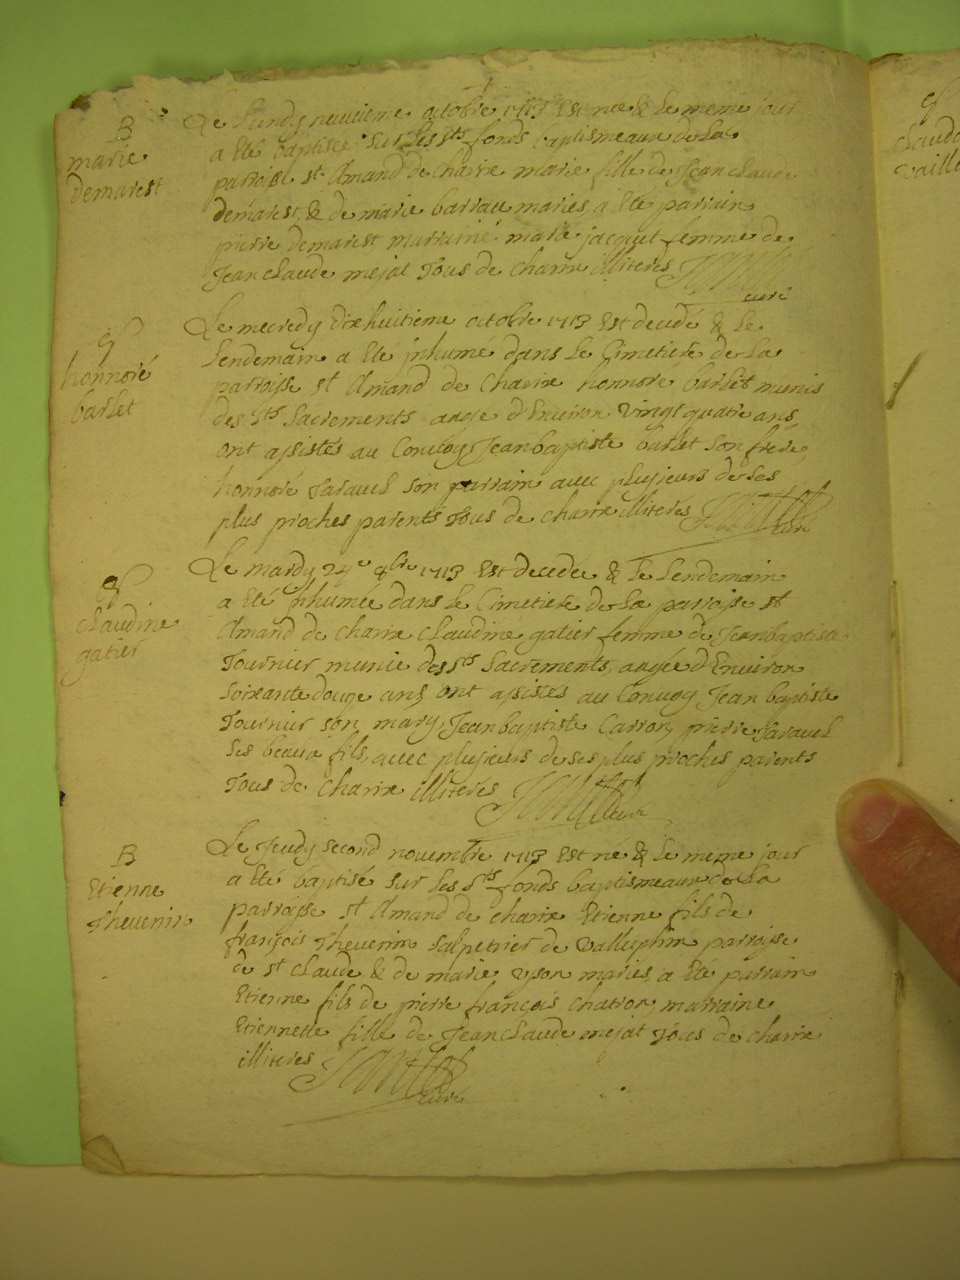 B
marie
demarest
Le Lundy neuvieme octobre 1713 Est née & Le meme jour
a Eté baptisée sur Les sts fonds baptismeaux de La
parroise st Amand de charix marie fille de Jean claude
demarest, & de marie barrau mariés, a Eté parrain
pierre demarest marraine marie jacquet femme de
Jean claude mejat Tous de charix illiterés
curé
honnoré
barlet
Le mecredy dixhuitieme octobre 1713 Est decedé & Le
Lendemain a Eté jnhumé dans Le Cimetiere de La
parroisse st Amand de Charix honnore barlet munis
des sts Sacrements angé d'Environ Vingt quatre ans
ont assistés au Convoy Jean baptiste barlet Son frere,
honnoré Taravel Son parrain avec plusieurs de Ses
plus proches parents Tous de charix illiterés
curé
claudine
gatier
Le mardy 24e 8bre 1713 Est decedée & le Lendemain
a Eté jnhumée dans Le Cimetiere de La parroisse st
Amand de charix claudine gatier femme de Jean baptiste
Tournier munie des sts Sacrements, angée d'Environ
soixante douze ans ont assistés au Convoy Jean baptiste
Tournier son mary, Jean baptiste Carron, pierre Taravel
Ses beaux fils, avec plusieurs de ses plus proches parents
Tous de Charix illiterés
curé
B
Etienne
Thevenin
Le Jeudy second novembre 1713 Est né & Le meme jour
a Eté baptisé sur Les sts fonds baptismeaux de La
parroisse st Amand de charix Etienne fils de
françois Thevenin salpetrier de parroisse
de st claude & de marie mariés, a Eté parrain
Etienne fils de pierre françois marraine
Etiennette fille de Jean claude mejat Tous de charix
illiterés
curé